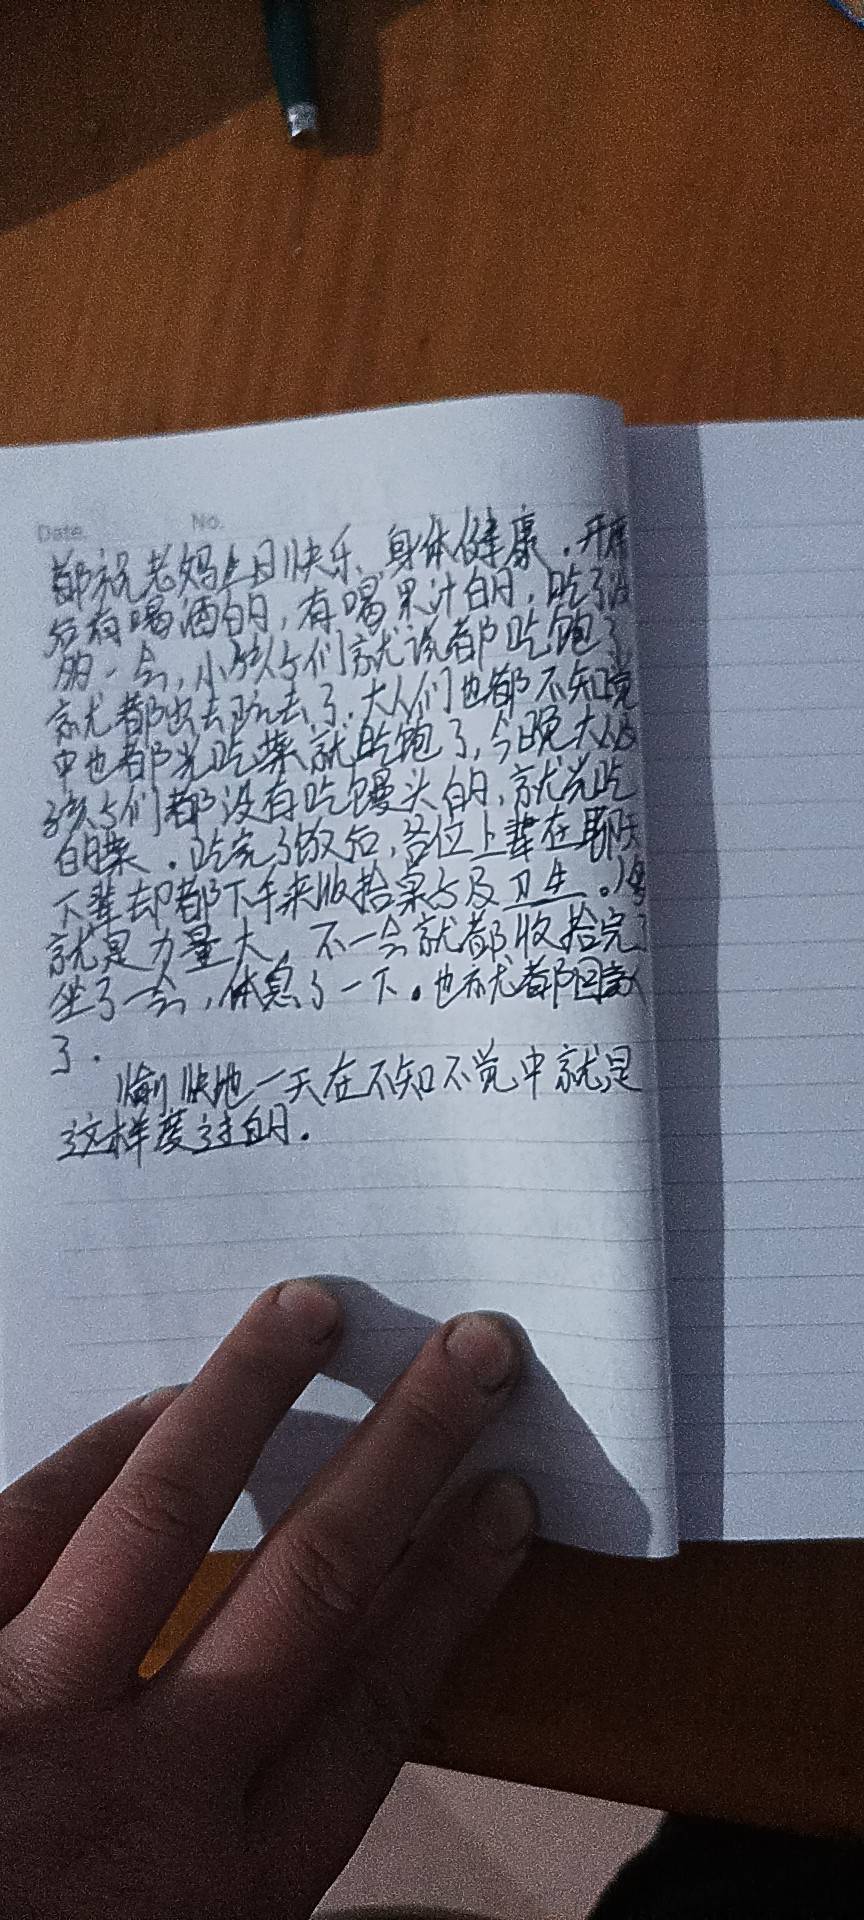 Date. No.
都祝老妈生日快乐、身体健康．开席
后有喝酒的，有喝果汁的，吃了没
多一会，小孩子们就说都吃饱了
就都出去玩去了．大人们也都不知觉
中也都光吃菜就吃饱了，今晚大人
孩子们都没有吃馒头的，就光吃
的菜．吃完了饭后，各位上辈在聊天
下辈却都下手来收拾桌子及卫生。人多
就是力量大，不一会就都收拾完了
坐了一会，休息了一下．也就都回家
了．
愉快地一天在不知不觉中就是
这样度过的．